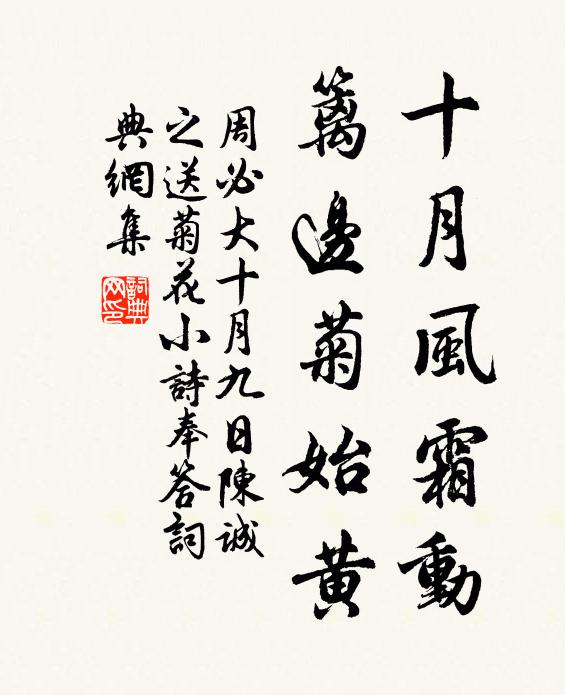 十月風霜動
籬邊菊始黄
周必大十月九日陳誠
之送菊花小詩奉答詞
典網集
詞典
网印